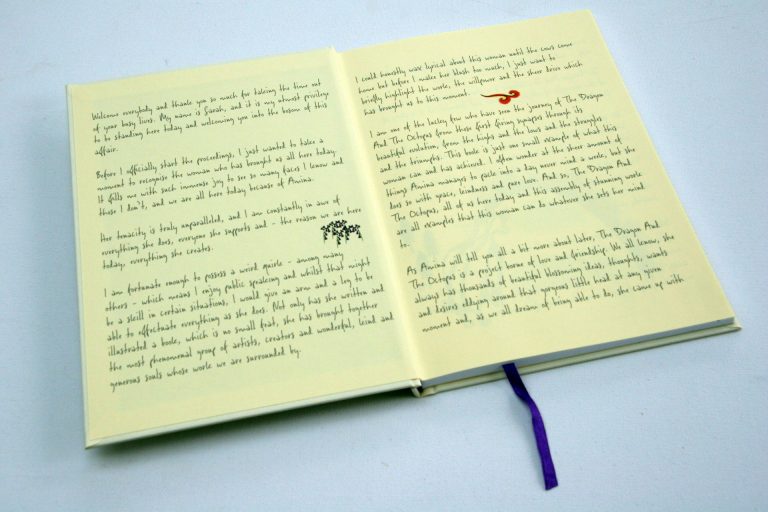 Welcome everybody and thank you so much for taking the time out
of your busy lives. My name is Sarah, and it is my utmost privilege
to be standing here today and welcoming you into the bosom of this
affair.
Before I officially start the proceedings, I just wanted to take a
moment to recognise the woman who has brought us all here today.
It fills me with such immense joy to see so many faces I know and
those I don't, and we are all here today because of Amina.
Her tenacity is truly unparalleled, and I am constantly in awe of
everything she does, everyone she supports and - the reason we are here
today, everything she creates.
I am fortunate enough to possess a weird quirk - among many
others - which means I enjoy public speaking and whilst that might
be a skill in certain situations, I would give an arm and a leg to be
able to effectuate everything as she does. Not only has she written and
illustrated a book, which is no small feat, she has brought together
the most phenomenal group of artists, creators and wonderful, kind and
generous souls whose work we are surrounded by.
I could honestly wax lyrical about this woman until the cows come
home but before I make her blush too much, I just want to
briefly highlight the work, the willpower and the sheer drive which
has brought us to this moment.
I am one of the lucky few who have seen the journey of The Dragon
And The Octopus from those first firing synapses through its
beautiful evolution, from the highs and the lows and the struggles
and the triumphs. This book is just one small example of what this
woman can and has achieved. I often wonder at the sheer amount of
things Amina manages to pack into a day, never mind a week, but she
does so with grace, kindness and pure love. And so, The Dragon And
The Octopus, all of us here today and this assembly of stunning work
are all examples that this woman can do whatever she sets her mind
to.
As Amina will tell you all a bit more about later, The Dragon And
The Octopus is a project borne of love and friendship. We all know, she
always has thousands of beautiful blossoming ideas, thoughts, wants
and desires eddying around that gorgeous little head at any given
moment and, as we all dream of being able to do, she came up with